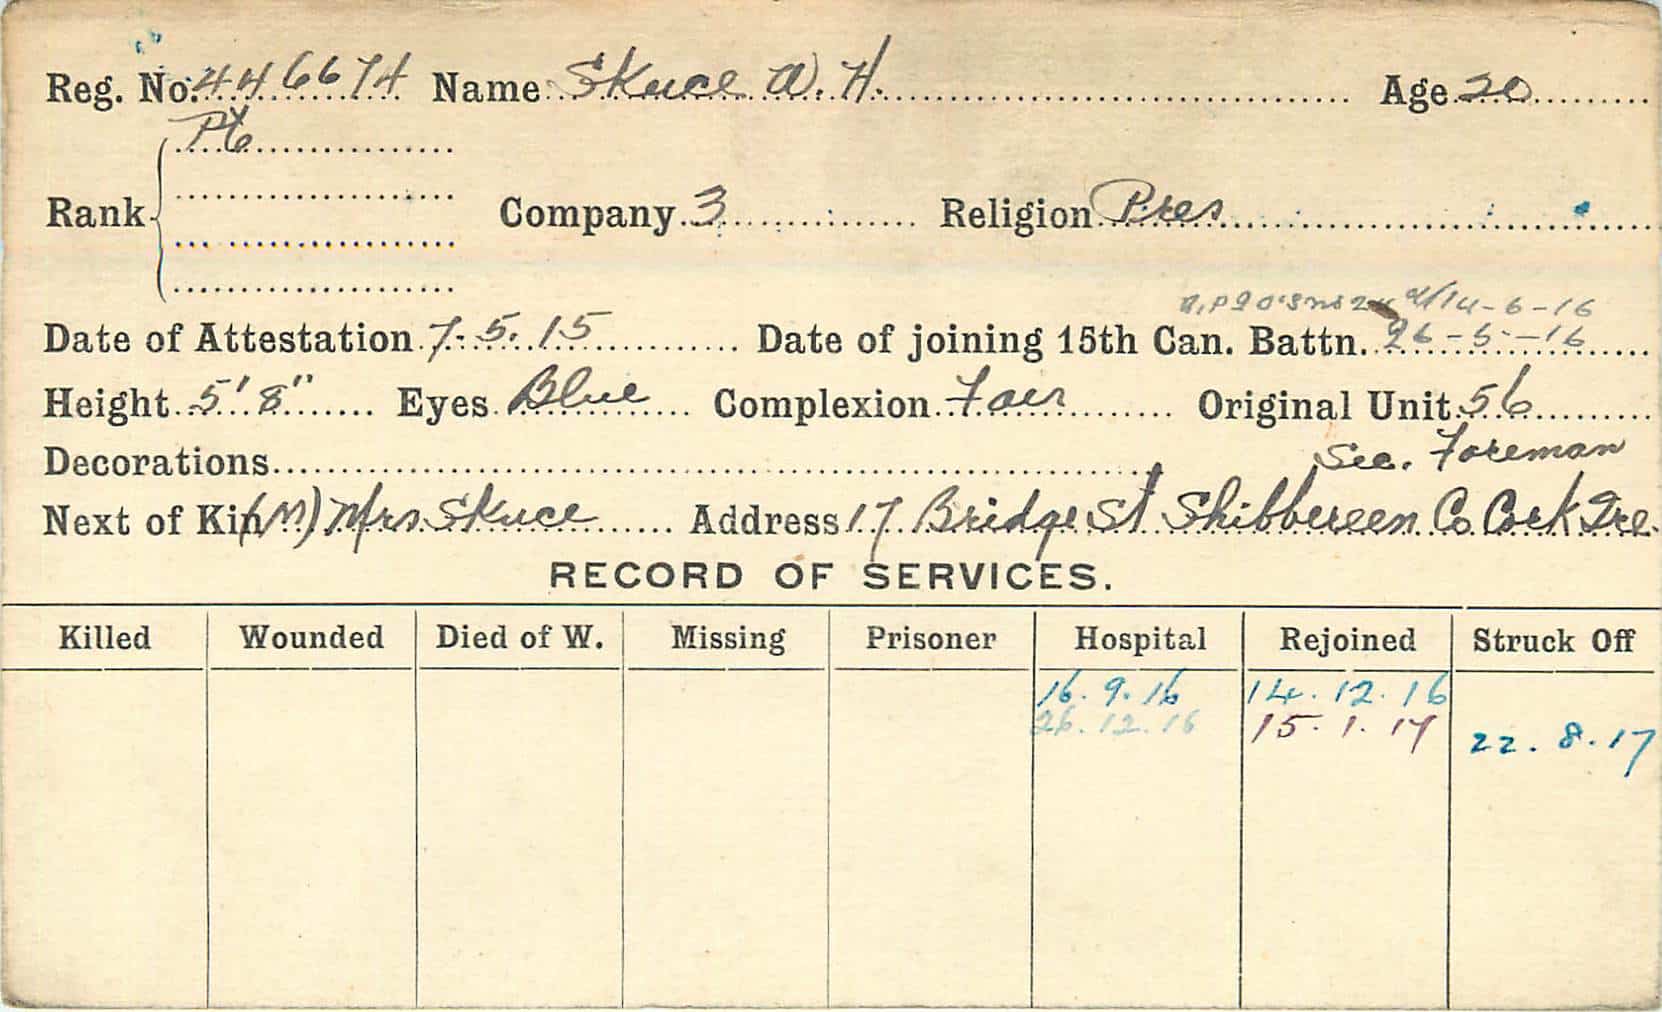 Reg. No. 446674 Name Skuce W. H. Age 20
Pte
Rank Company 3 Religion Pres
14-6-16
Date of Attestation 7.5.15 Date of joining 15th Can. Battn. 26-5-16
Height 5'8" Eyes Blue Complexion Fair Original Unit 56
Decorations Sec. Foreman
Next of Kin (M) Mrs Skuce Address 17 Bridge St Skibbereen Co Cork Ire.
RECORD OF SERVICES.
Killed Wounded Died of W. Missing Prisoner Hospital Rejoined Struck Off
16.9.16 14.12.16
26.12.16 15.1.17 22.8.17